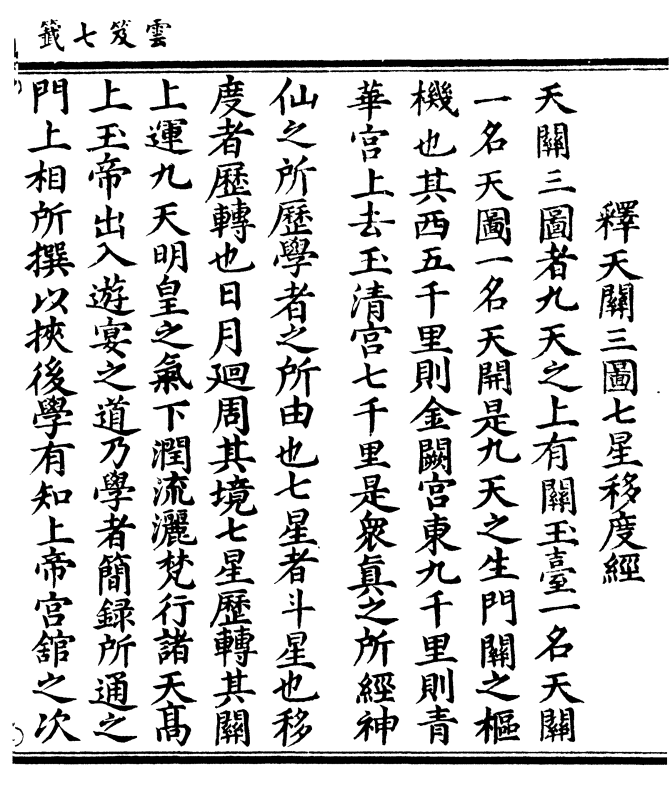 雲笈七籤
釋天關三圖七星移度經
天關三圖者九天之上有關玉臺一名天關
一名天圖一名天開是九天之生門關之樞
機也其西五千里則金闕宮東九千里則青
華宮上去玉清宮七千里是衆眞之所經神
仙之所歷學者之所由也七星者斗星也移
度者歷轉也日月廻周其境七星歷轉其關
上運九天明皇之氣下潤流灑梵行諸天髙
上玉帝出入遊宴之道乃學者簡録所通之
門上相所撰以挾後學有知上帝宮舘之次